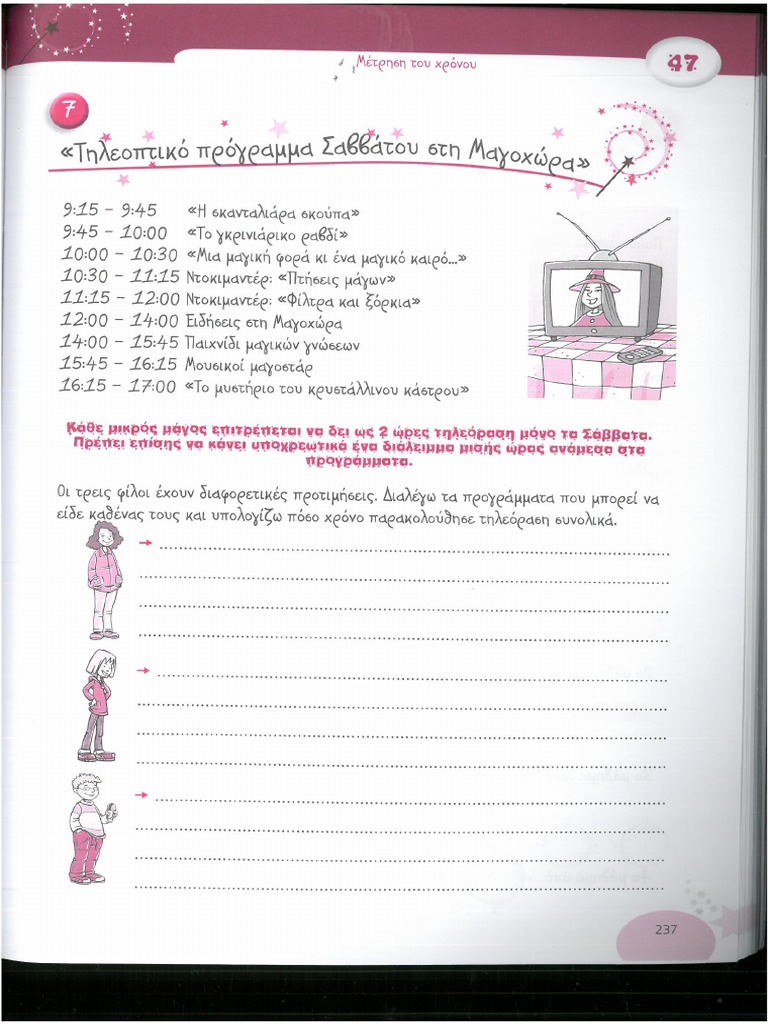 Μέτρηση του χρόνου
47
7
«Τηλεοπτικό πρόγραμμα Σαββάτου στη Μαγοχώρα»
9:15 – 9:45 «Η σκανταλιάρα σκούπα»
9:45 – 10:00 «Το γκρινιάρικο ραβδί»
10:00 – 10:30 «Μια μαγική φορά κι ένα μαγικό καιρό...»
10:30 – 11:15 Ντοκιμαντέρ: «Πτήσεις μάγων»
11:15 – 12:00 Ντοκιμαντέρ: «Φίλτρα και ξόρκια»
12:00 – 14:00 Ειδήσεις στη Μαγοχώρα
14:00 – 15:45 Παιχνίδι μαγικών γνώσεων
15:45 – 16:15 Μουσικοί μαγοστάρ
16:15 – 17:00 «Το μυστήριο του κρυστάλλινου κάστρου»
Κάθε μικρός μάγος επιτρέπεται να δει ως 2 ώρες τηλεόραση μόνο τα Σάββατα.
Πρέπει επίσης να κάνει υποχρεωτικά ένα διάλειμμα μισής ώρας ανάμεσα στα
προγράμματα.
Οι τρεις φίλοι έχουν διαφορετικές προτιμήσεις. Διαλέγω τα προγράμματα που μπορεί να
είδε καθένας τους και υπολογίζω πόσο χρόνο παρακολούθησε τηλεόραση συνολικά.
237